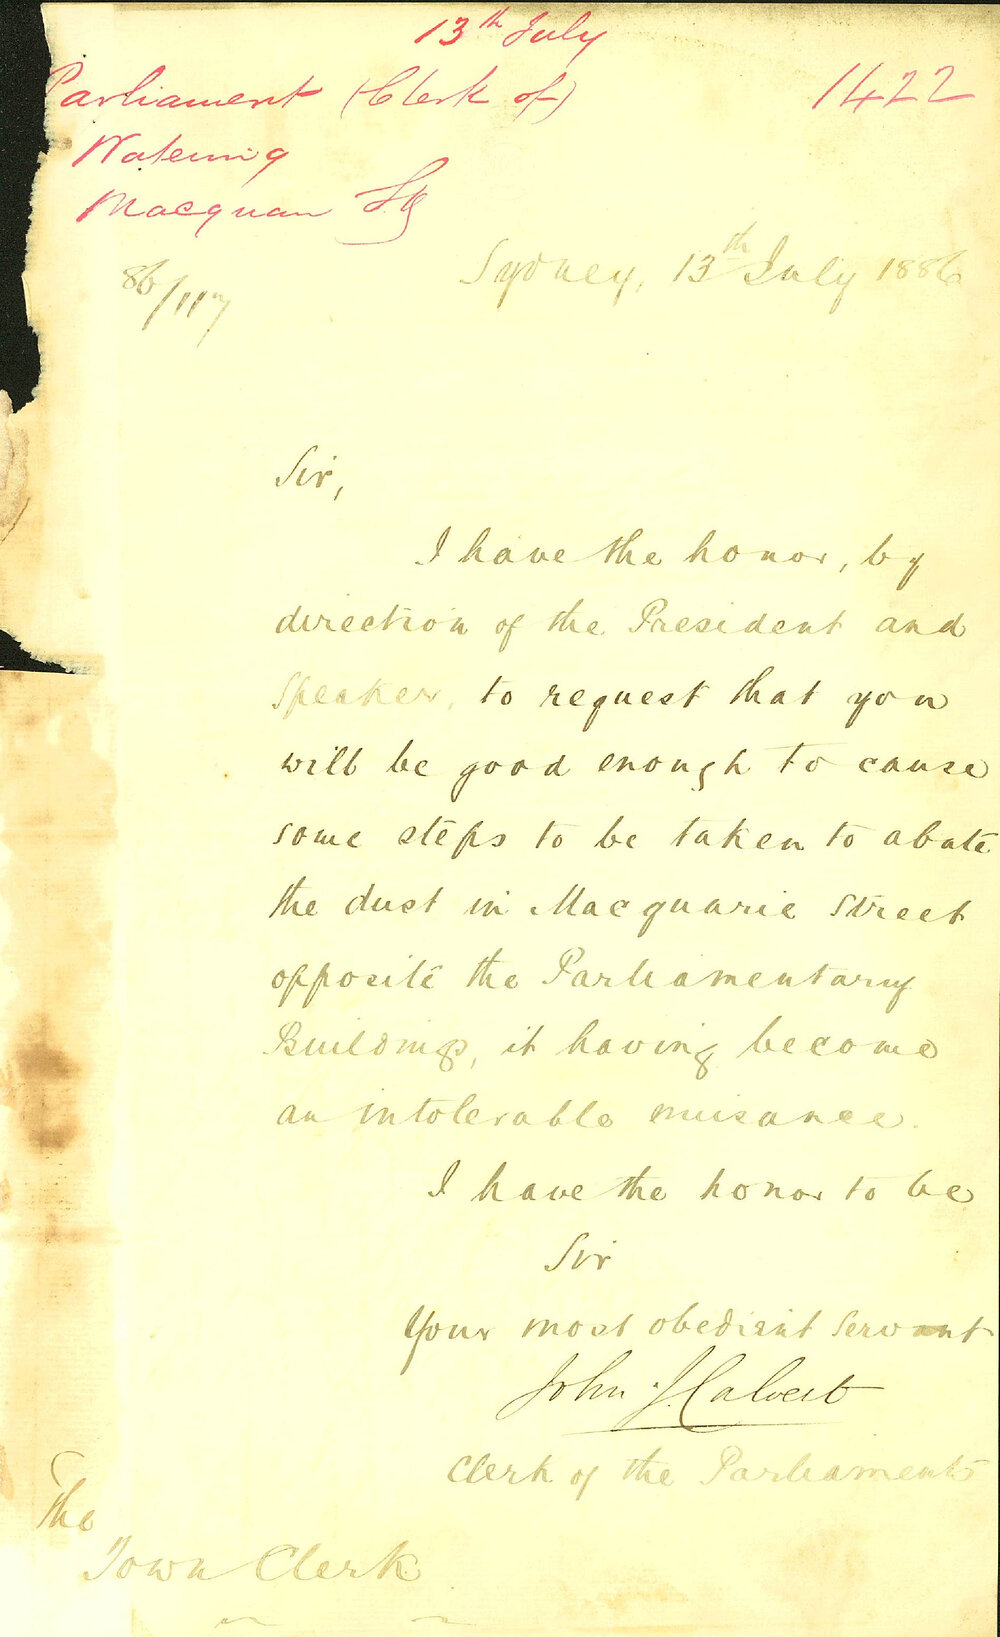 13th July
Parliament (Clerk of)
1422
Watering
Macquarie St
86/117
Sydney, 13th July 1886
Sir,
I have the honor, by
direction of the President and
Speaker, to request that you
will be good enough to cause
some steps to be taken to abate
the dust in Macquarie Street
opposite the Parliamentary
Buildings, it having become
an intolerable nuisance.
I have the honor to be
Sir
Your most obedient servant
John J. Calvert
Clerk of the Parliaments
The
Town Clerk